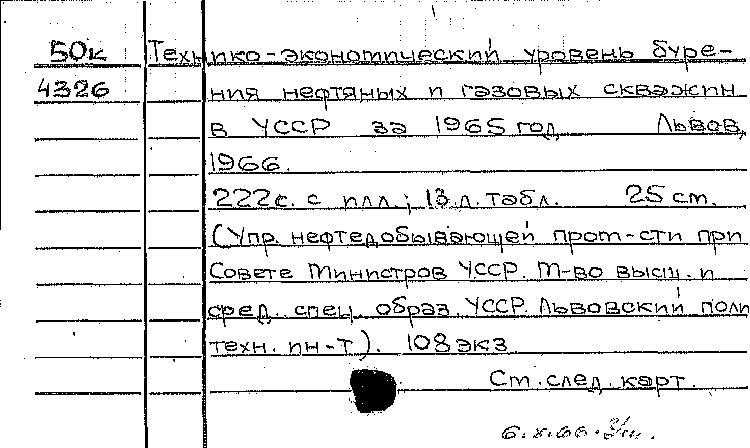 50к Технико-экономический уровень буре-
4326 ния нефтяных и газовых скважин
в УССР за 1965 год Львов,
1966.
222с. с илл.; 13 л. табл. 25 см.
(Упр. нефтедобывающей пром-сти при
Совете Министров УССР. М-во высш. и
сред. спец. образ. УССР. Львовский поли
техн. ин-т). 108 экз
См. след. карт.
6.X.66.